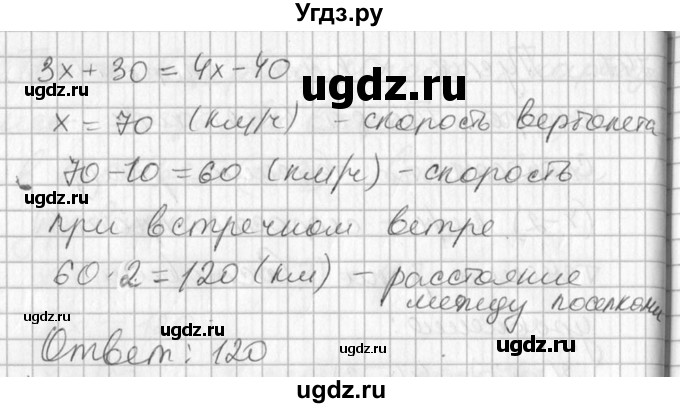 Угдз.ру
3x + 30 = 4x - 40
ugdz.ru ugdz.ru
x = 70 (км/ч) - скорость вертолета
70 - 10 = 60 (км/ч) - скорость
ugdz.ru ugdz.ru
при встречном ветре
60 · 2 = 120 (км) - расстояние
между поселками
ugdz.ru ugdz.ru ugdz.ru
Ответ: 120
ugdz.ru